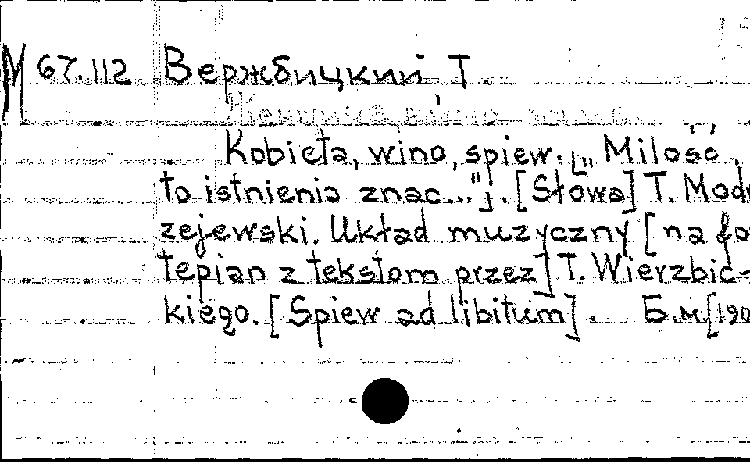 М 67.112 Вержбицкий, Т.
Kobieta, wino, spiew. [„Milość,
to istnienia znac..."]. [Słowa] T. Mod
zejewski. Układ muzyczny [na fo
tepian z tekstom przez] T. Wierzbic-
kiego. [Spiew ad libitum]. Б.м [190